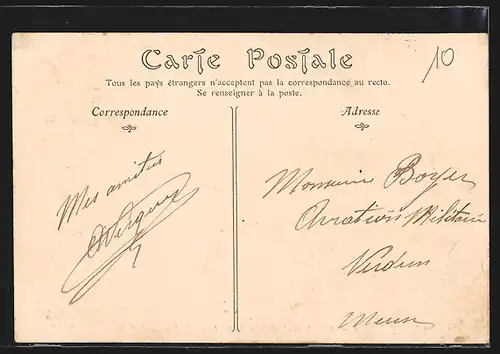 10
Carte Postale
Tous les pays étrangers n'acceptent pas la correspondance au recto.
Se renseigner à la poste.
Correspondance
Adresse
Mes amitiés
Monsieur Boyer
Aviation Militaire
Verdun
Meuse